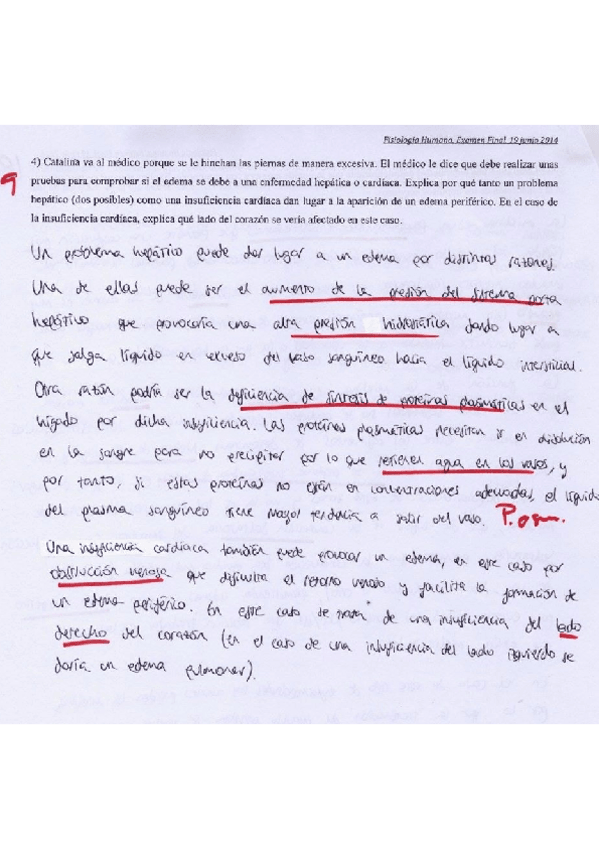 Fisiología Humana. Examen Final. 19 junio 2014
4) Catalina va al médico porque se le hinchan las piernas de manera excesiva. El médico le dice que debe realizar unas
9
pruebas para comprobar si el edema se debe a una enfermedad hepática o cardíaca. Explica por qué tanto un problema
hepático (dos posibles) como una insuficiencia cardíaca dan lugar a la aparición de un edema periférico. En el caso de
la insuficiencia cardíaca, explica qué lado del corazón se vería afectado en este caso.
Un problema hepático puede dar lugar a un edema por distintas razones.
Una de ellas puede ser el aumento de la presión del sistema porta
hepático que provocaría una alta presión hidrostática dando lugar a
que salga líquido en exceso del vaso sanguíneo hacia el líquido intersticial.
Otra razón podría ser la deficiencia de síntesis de proteínas plasmáticas en el
hígado por dicha insuficiencia. Las proteínas plasmáticas necesitan ir en disolución
en la sangre para no precipitar por lo que retienen agua en los vasos, y
por tanto, si estas proteínas no están en concentraciones adecuadas, el líquido
del plasma sanguíneo tiene mayor tendencia a salir del vaso. P. osm.
Una insuficiencia cardíaca también puede provocar un edema, en este caso por
obstrucción venosa que dificulta el retorno venoso y facilita la formación de
un edema periférico. En este caso se trata de una insuficiencia del lado
derecho del corazón (en el caso de una insuficiencia del lado izquierdo se
daría un edema pulmonar).